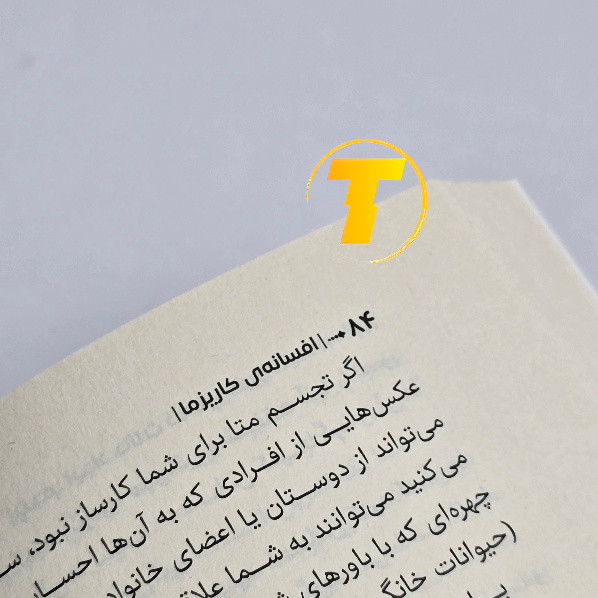 T
۸۴ ⟶ | افسانه‌ی کاریزما |
اگر تجسم متا برای شما کارساز نبود،
عکس‌هایی از افرادی که به آن‌ها
می‌تواند از دوستان یا اعضای
می‌کنید می‌توانند به شما
چهره‌ای که با باورهای
(حیوانات